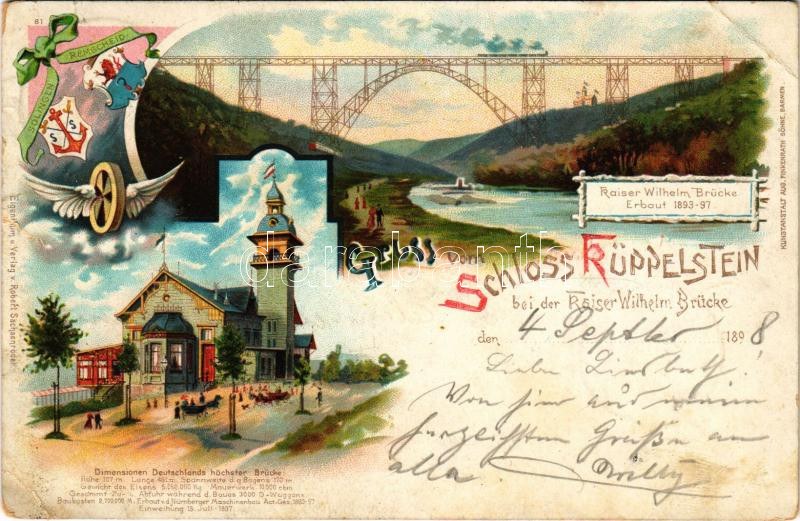 81
REMSCHEID.
SOLINGEN
S S
Kaiser Wilhelm Brücke
Erbaut 1893-97.
KUNSTANSTALT AUG. FINKENRATH SÖHNE, BARMEN
Eigenthum u. Verlag v. Robert
Gruss vom
Schloss Küppelstein
bei der Kaiser Wilhelm Brücke
den 4 Septber 1898
Lieben
Von hier aus meine
herzlichsten Grüße an
alle Willy
Dimensionen Deutschlands höchster Brücke:
Höhe 107 m. Länge 491 m. Spannweite d. g. Bogens 170 m
Gewicht des Eisens 5,050,000 Kg. Mauerwerk 10,000 cbm
Gesammt Zu- u. Abfuhr während d. Baues 3000 D-Waggons
Baukosten M. Erbaut v. d. Nürnberger Maschinenbau Act-Ges. 1893-97.
Einweihung 15. Juli 1897.
darabanth.com